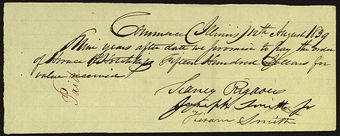 Commerce Illinois 12th August 1839
Nine years after date we promise to pay the order
of Horace R Hotchkiss Fifteen Hundred Dollars for
value received
Paid
Sidney Rigdon
Joseph Smith Jr
Hiram Smith